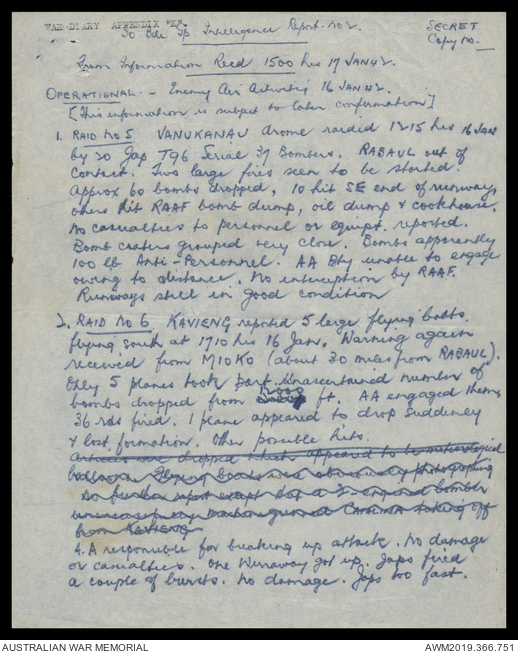 WAR DIARY APPENDIX "K".
30 Bde Gp Intelligence Report No 2.
SECRET
Copy No.
From Information Recd 1500 hrs 17 JAN 42.
OPERATIONAL:- Enemy Air Activities 16 JAN 42.
[This information is subject to later confirmation]
1. RAID No 5 VANUKANAU drome raided 1215 hrs 16 JAN
by 20 Jap T96 Serial 37 Bombers. RABAUL out of
contact. Two large fires seen to be started.
Approx 60 bombs dropped, 10 hit SE end of runways,
others hit RAAF bomb dump, oil dump & cookhouse.
No casualties to personnel or equipt. reported.
Bomb craters grouped very close. Bombs apparently
100 lb Anti-Personnel. AA Bty unable to engage
owing to distance. No interception by RAAF.
Runways still in good condition
2. RAID No 6. KAVIENG reported 5 large flying boats
flying south at 1710 hrs 16 Jan. Warning again
received from MIOKO (about 30 miles from RABAUL).
Only 5 planes took part. Unascertained number of
bombs dropped from ft. AA engaged them,
36 rds fired. 1 plane appeared to drop suddenly
& lost formation. Other possible hits.
Articles are dropped which appeared to be meteorological
balloons. Flying boats were obviously photographing
No further report except that a 3-engined bomber
taking off
from KAVIENG
A.A responsible for breaking up attack. No damage
or casualties. One Wirraway got up. Japs fired
a couple of bursts. No damage. Japs too fast.
AUSTRALIAN WAR MEMORIAL
AWM2019.366.751